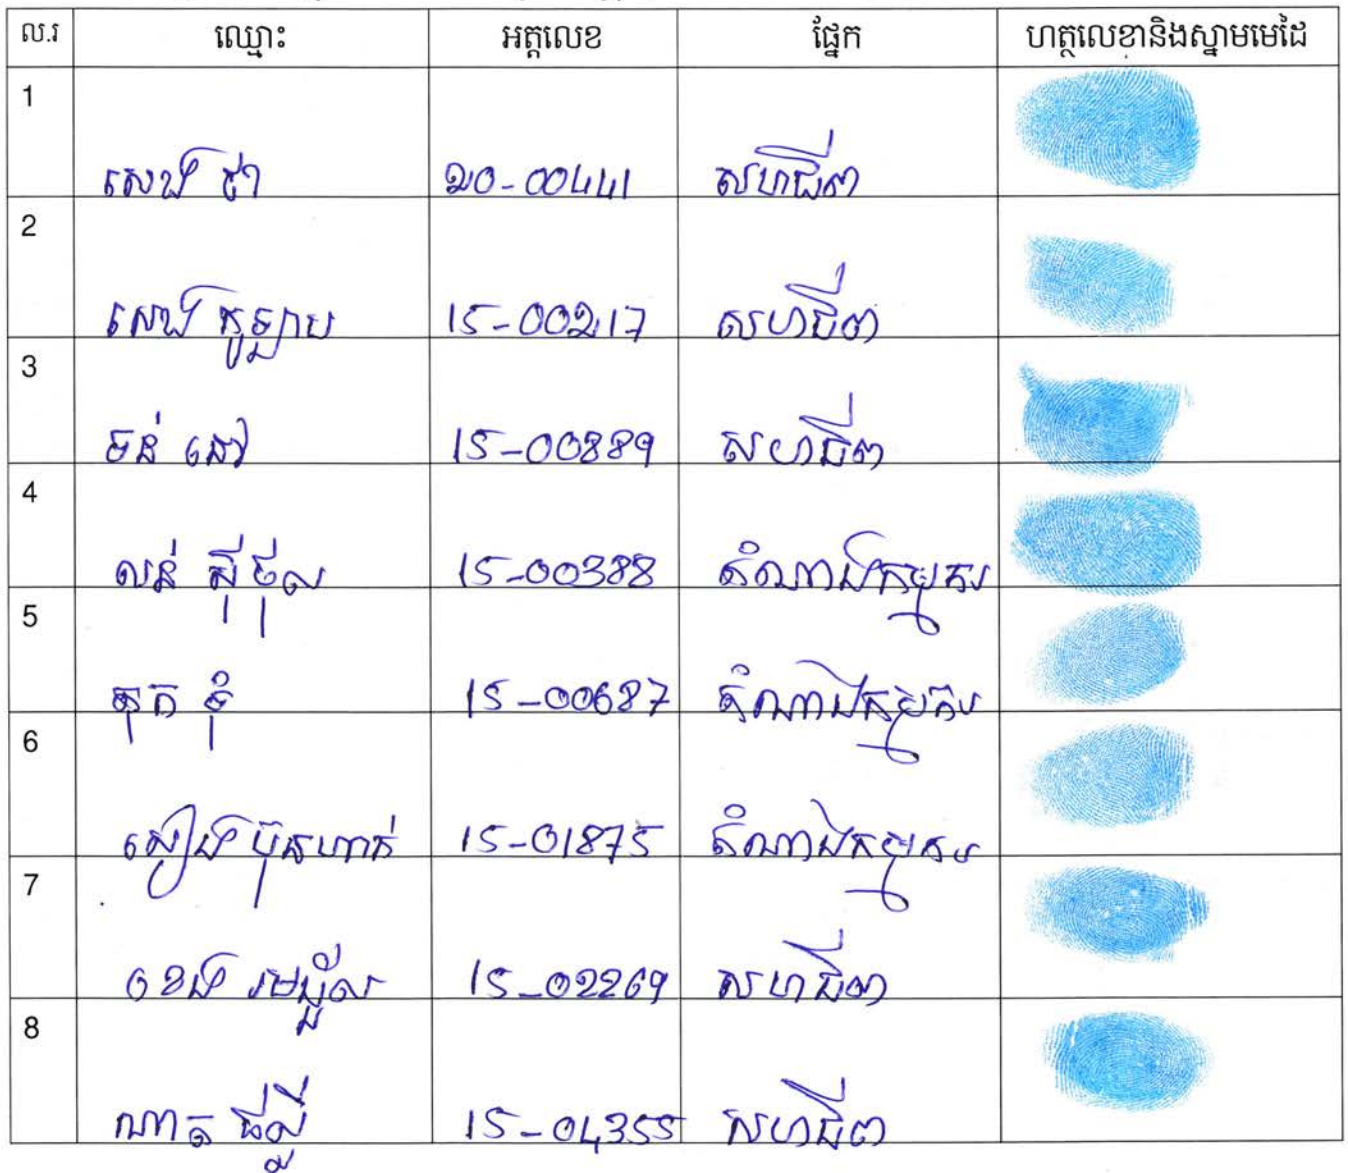 ល.រ ឈ្មោះ អត្តលេខ ផ្នែក ហត្ថលេខានិងស្នាមមេដៃ
1
សេង ជា 20-00441 សហជីព
2
សេង កូឡាប 15-00217 សហជីព
3
ចន់ នៅ 15-00889 សហជីព
4
លន់ ស៊ីថុល 15-00388 តំណាងកម្មករ
5
15-00687 តំណាងកម្មករ
6
សៀង ប៊ុនហាក់ 15-01875 តំណាងកម្មករ
7
ខេង រមង្រ្គួល 15-02269 សហជីព
8
ណាត ផល្លី 15-04355 សហជីព